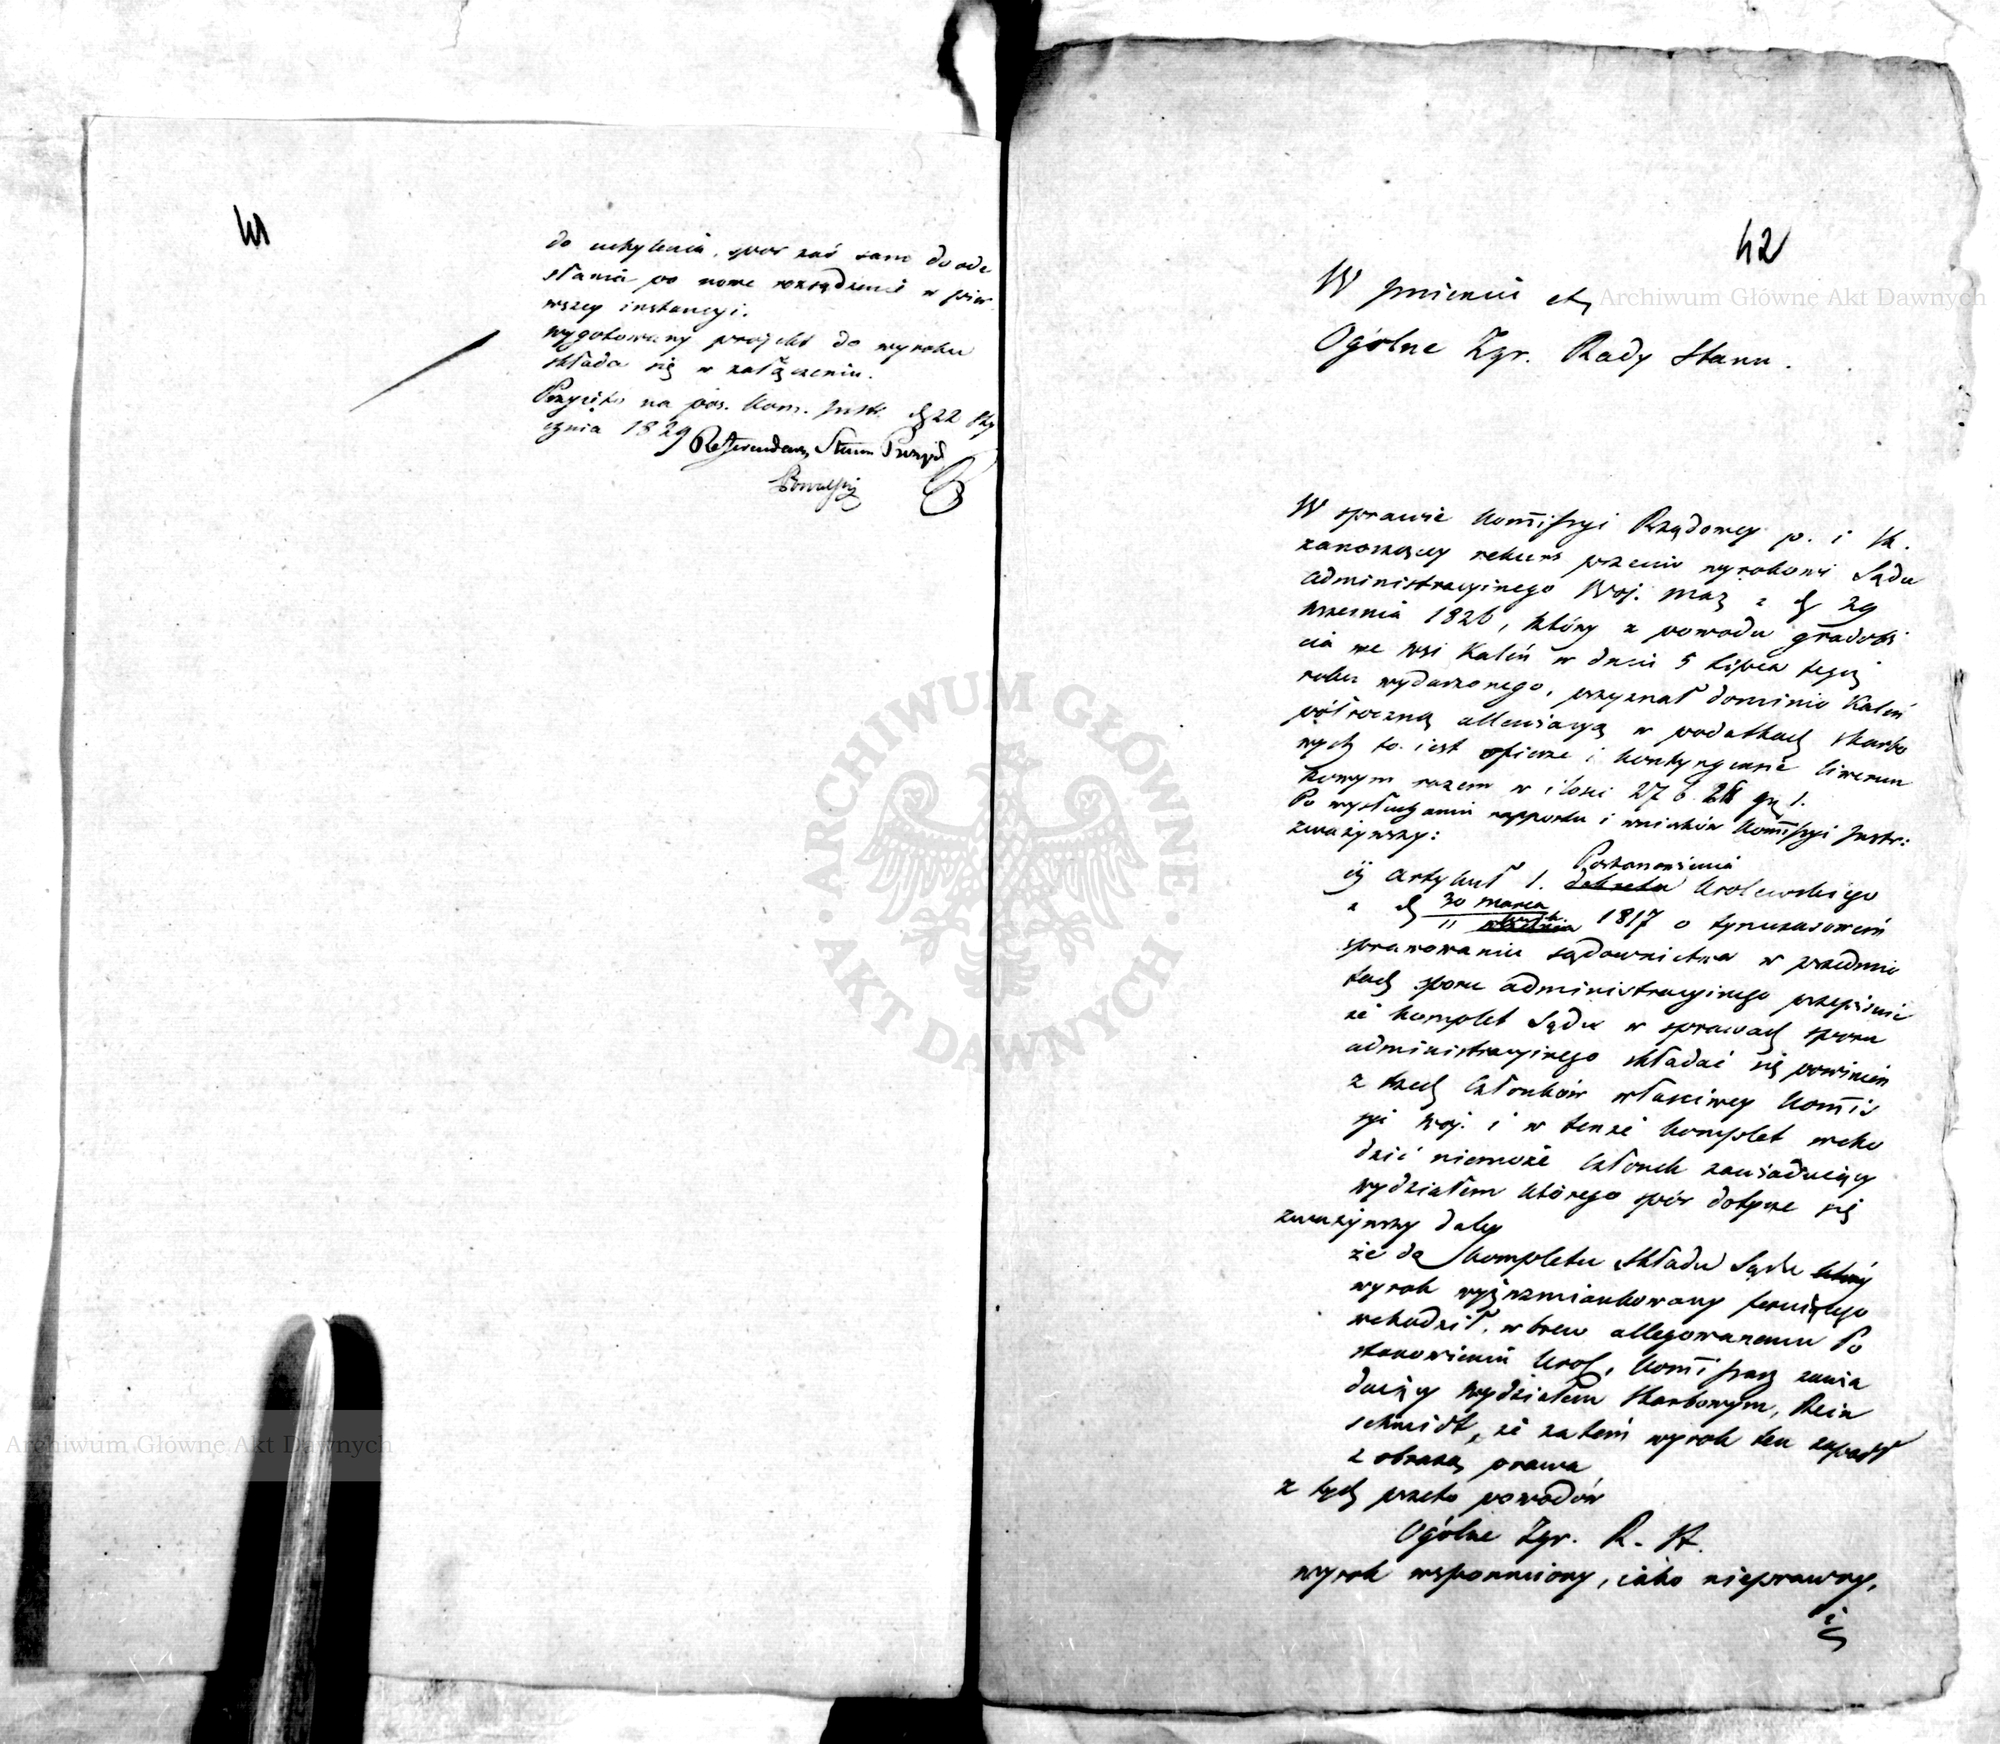 41
do uchylenia, spor zaś sam do ode
słania po nowe rozsądzenie w pier
wszey instancyi.
wygotowany projekt do wyroku
składa się w załączeniu.
Przyięto na pos. Kom. Instr. d. 22 Sty
cznia 1829 Referendarz Stanu
42
W Imieniu etc
Ogólne Zgr. Rady Stanu.
W sprawie Kommissyi Rządowey p. i Sk.
zanoszącey rekurs przeciw wyrokowi Sądu
administracyinego Woj. Maz z d. 29
Wrzesnia 1826, który z powodu gradobi
cia we wsi Kaleń w dniu 5 Lipca tegoż
roku wydarzonego, przyznał dominio Kaleń
półroczną allewiacyą w podatkach skarbo
wych to iest ofierze i kontyngensie liwerun
kowym razem w ilości 276 gr 1.
Po wysłuchaniu rapportu i wniosków Kommissyi Instr:
zważywszy:
iż Artykuł 1. Postanowienia dekretu Krolewskiego
z d. 30 marca
11 1817 o tymczasowem
sprawowaniu sądownictwa w przedmio
tach sporu administracyinego przepisuie
że komplet Sądu w sprawach sporu
administracyinego składać się powinien
z trzech Członków właściwey Kommis
syi Woj. i w tenże komplet wcho
dzić niemoże Członek zawiaduiący
wydziałem którego spór dotycze się
zważywszy daley
że do kompletu składu Sądu który
wyrok wyżwzmiankowany feruiącego
wchodził, wbrew allegowanemu Po
stanowieniu Krol, Kommissarz zawia
duiący Wydziałem Skarbowym, Rein
schmidt, że zatem wyrok ten zapadł
z obrazą prawa
z tych przeto powodów
Ogólne Zgr. R. St.
wyrok wspomniony, iako nieprawny,
i
Archiwum Główne Akt Dawnych
ARCHIWUM GŁÓWNE AKT DAWNYCH
Archiwum Główne Akt Dawnych